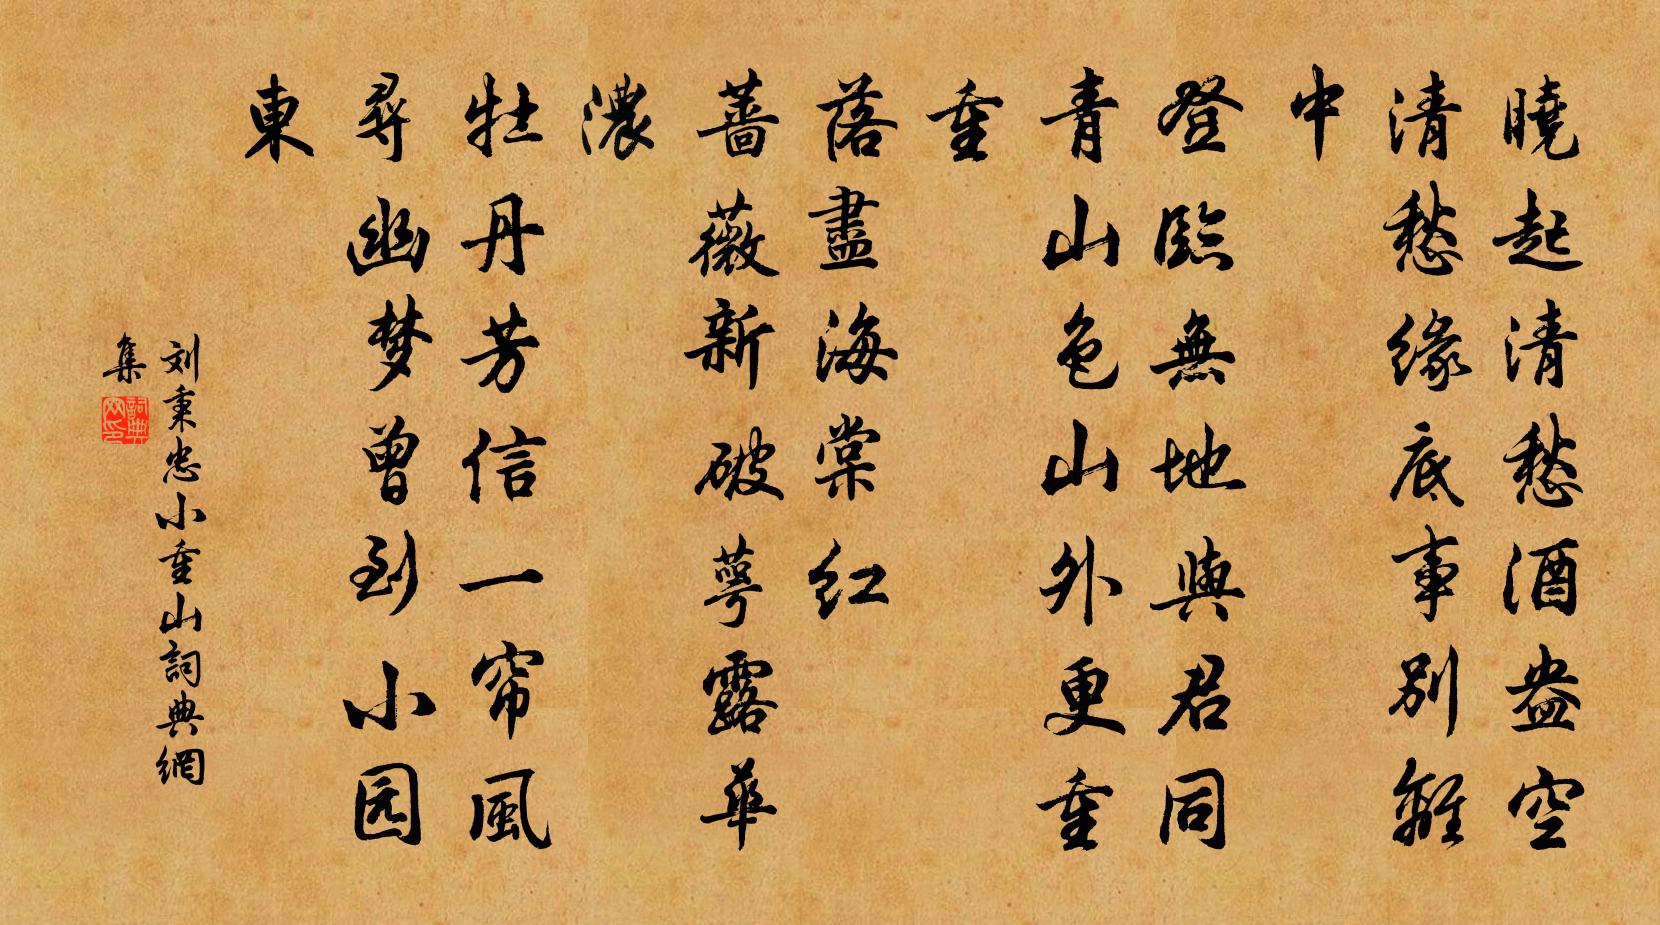 曉起清愁酒盎空
清愁緣底事別離
中
登臨無地與君同
青山色山外更重
重
落盡海棠红
薔薇新破萼露華
濃
牡丹芳信一帘風
尋幽梦曾到小园
東
刘秉忠小重山詞典網
集
詞典網印